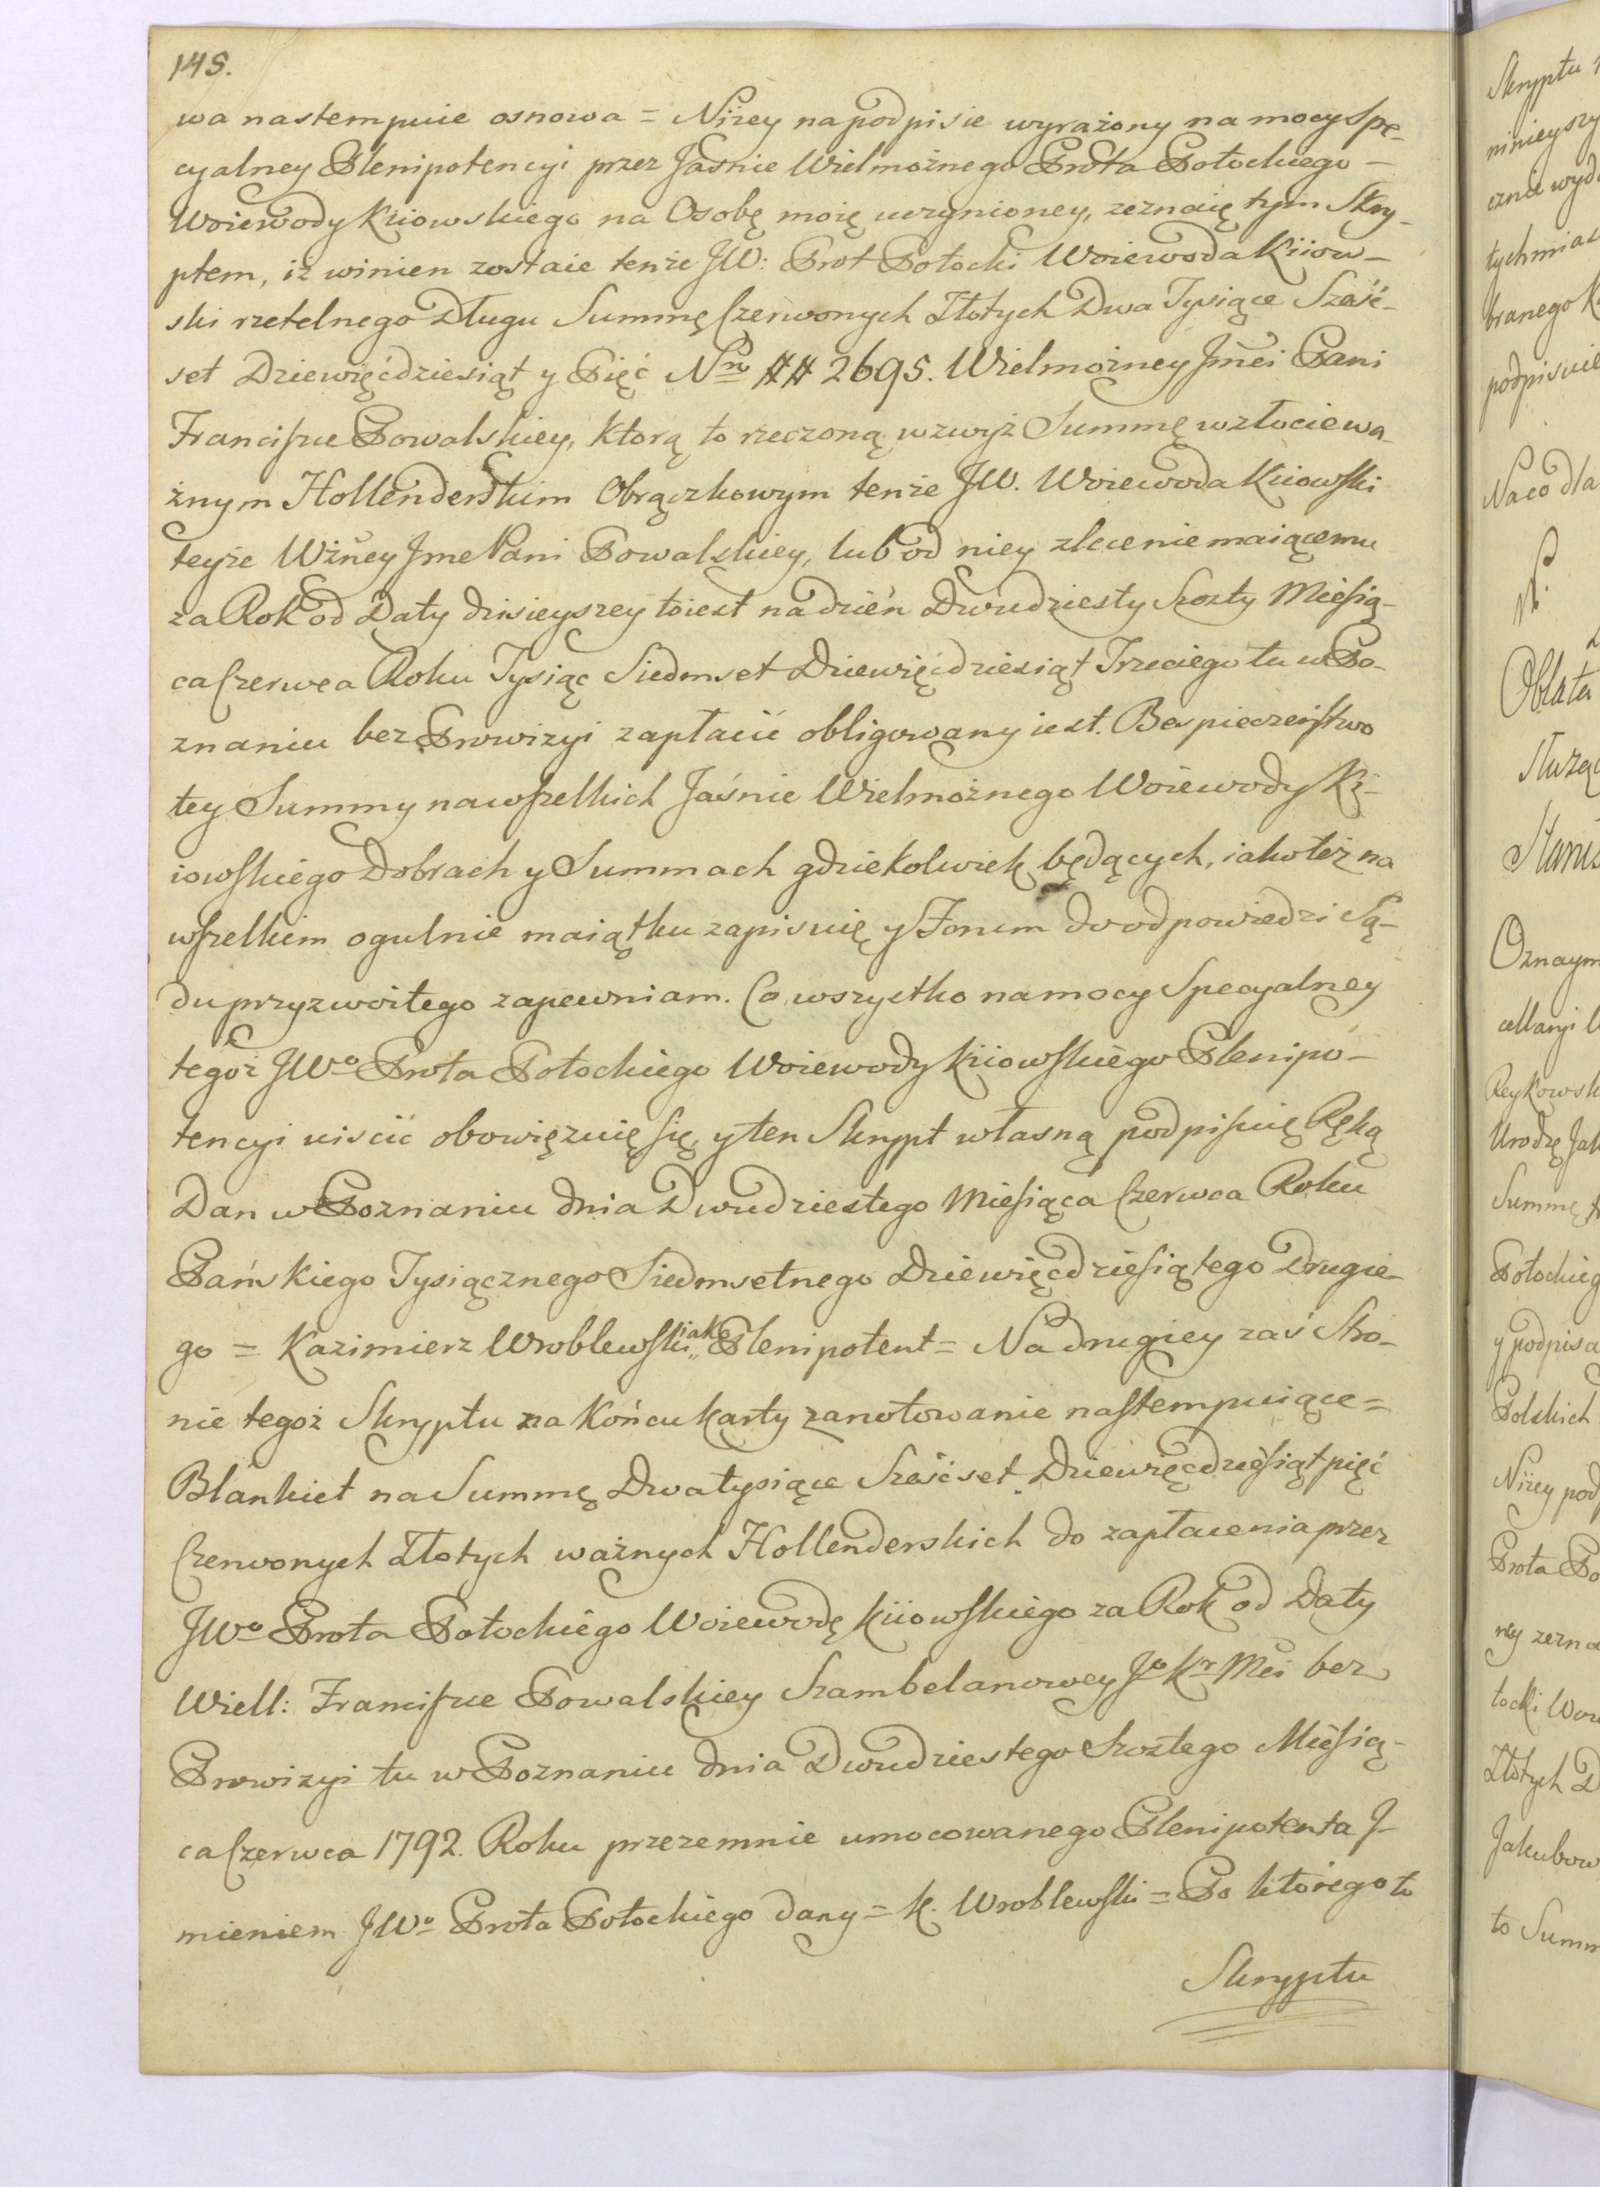 148.
wa nastempuie osnowa = Niżey na podpisie wyrażony na mocy Spe-
cyalney Plenipotencyi przez Jaśnie Wielmożnego Prota Potockiego -
Woiewody Kiiowskiego na Osobę moię uczynioney, zeznaię tym Skry-
ptem, iż winien zostaie tenże JW: Prot Potocki Woiewoda Kiiow-
ski rzetelnego Długu Summę Czerwonych Złotych Dwa Tysiące Sześć-
set Dziewięćdziesiąt y Pięć Nro ## 2695. Wielmożney Jmci Pani
Franciszce Powalskiey, ktorą to rzeczoną wzwyż Summę w złocie wa-
żnym Hollenderskim Obrączkowym tenże JW. Woiewoda Kiiowski
teyże Wżney Jme Pani Powalskiey, lub od niey zlecenie maiącemu
za Rok od Daty dzisieyszey to iest na dzień Dwudziesty Szosty Miesią-
ca Czerwca Roku Tysiąc Siedmset Dziewięćdziesiąt Trzeciego tu w Po-
znaniu bez Prowizyi zapłacić obligowany iest. Bespieczeństwo
tey Summy na wszelkich Jaśnie Wielmożnego Woiewody Ki-
iowskiego Dobrach y Summach gdziekolwiek będących, iako też na
wszelkim ogulnie maiątku zapisuię y Forum do odpowiedzi Są-
du przyzwoitego zapewniam. Co wszystko na mocy Specyalney
tegoż JWo Prota Potockiego Woiewody Kiiowskiego Plenipo-
tencyi uiscić obowięzuię się, y ten Skrypt własną podpisuię Ręką
Dan w Poznaniu dnia Dwudziestego Miesiąca Czerwca Roku
Pańskiego Tysiącznego Siedmsetnego Dziewięćdziesiątego Drugie-
go = Kazimierz Wroblewski iako Plenipotent = Na drugiey zaś Stro-
nie tegoż Skryptu na końcu karty zanotowanie nastempuiące =
Blankiet na Summę Dwa tysiące Sześćset Dziewięćdziesiąt pięć
Czerwonych Złotych ważnych Hollenderskich do zapłacenia przez
JWo Prota Potockiego Woiewodę Kiiowskiego za Rok od Daty
Wiell: Franciszce Powalskiey Szambelanowey Jo Kr Mci bez
Prowizyi tu w Poznaniu dnia Dwudziestego Szostego Miesią-
ca Czerwca 1792. Roku przezemnie umocowanego Plenipotenta J-
mieniem JWo Prota Potockiego dany = K. Wroblewski = Po ktorego to
Skryptu
Skryptu
ninieyszy
cznie wyd
tychmias
branego K
podpisuie
Na co dla
Oblata
Służąc
Stanis
Oznaym
cellaryi
Reykowsk
Urodzę Jak
Summę
Potockieg
y podpisa
Polskich
Niżey pod
Prota Po
ney zezna
tocki Woi
Złotych D
Jakubow
to Summ